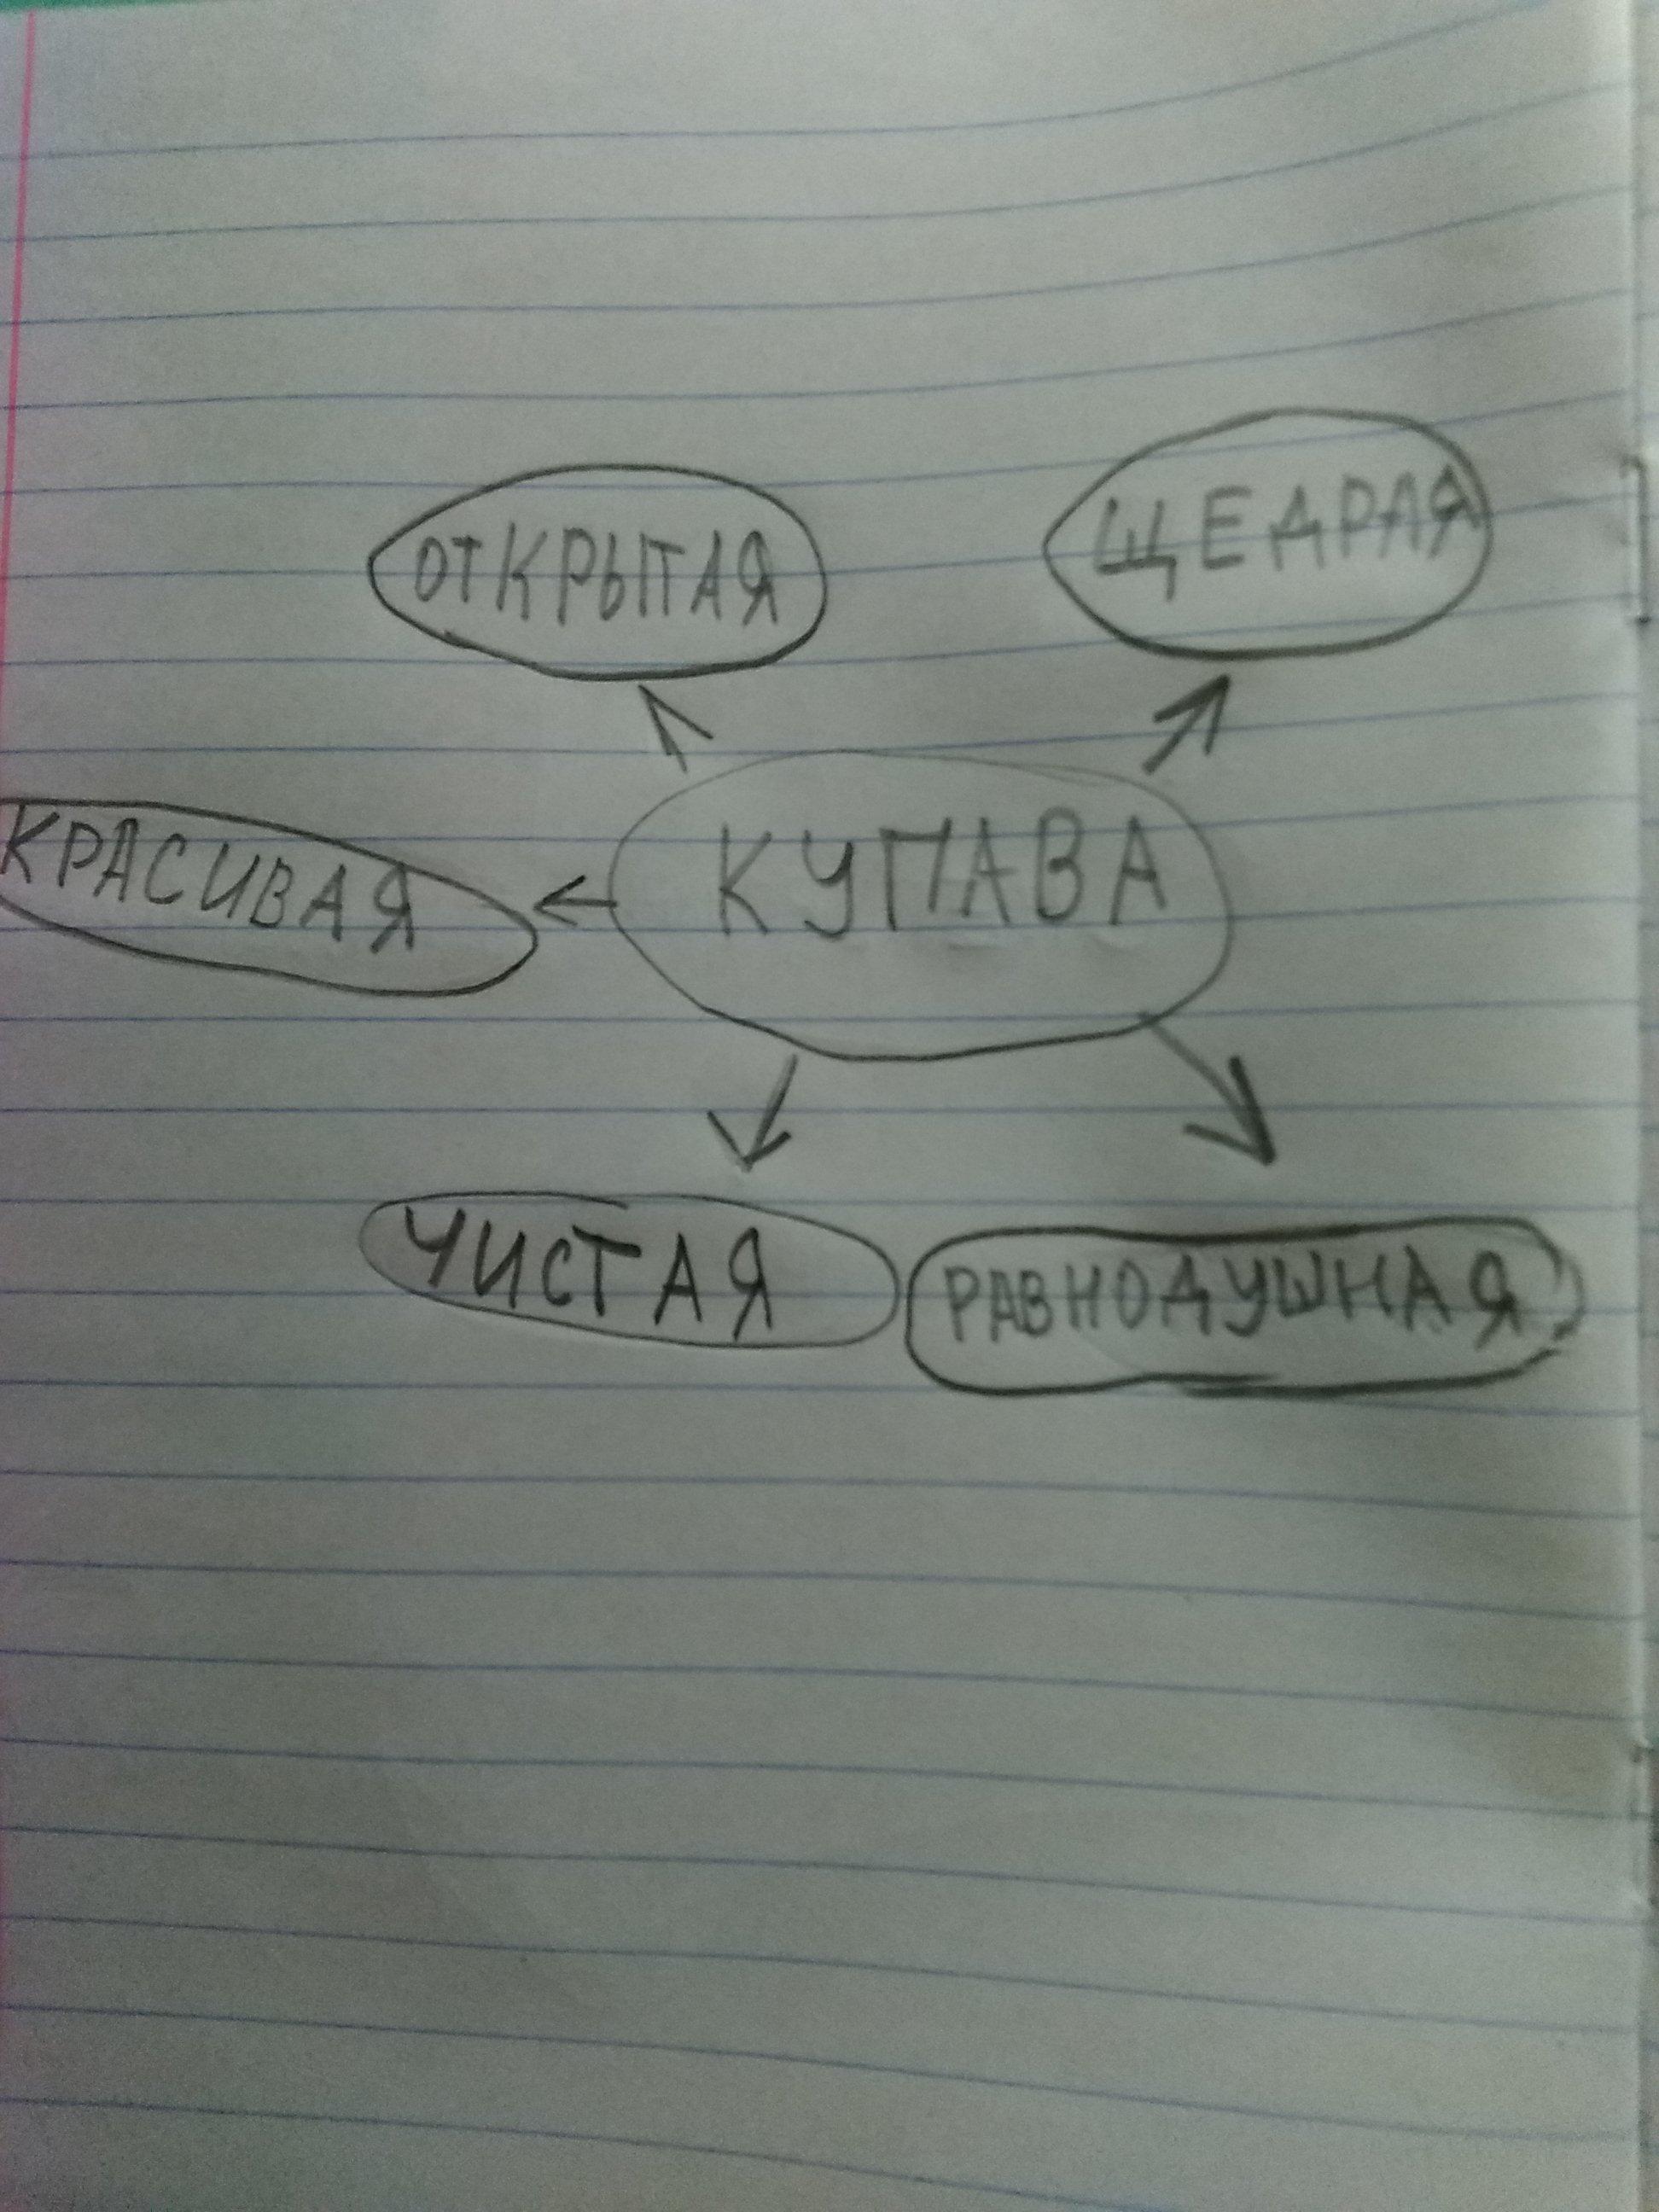 ОТКРЫТАЯ
ЩЕДРАЯ
КРАСИВАЯ
КУПАВА
ЧИСТАЯ
РАВНОДУШНАЯ